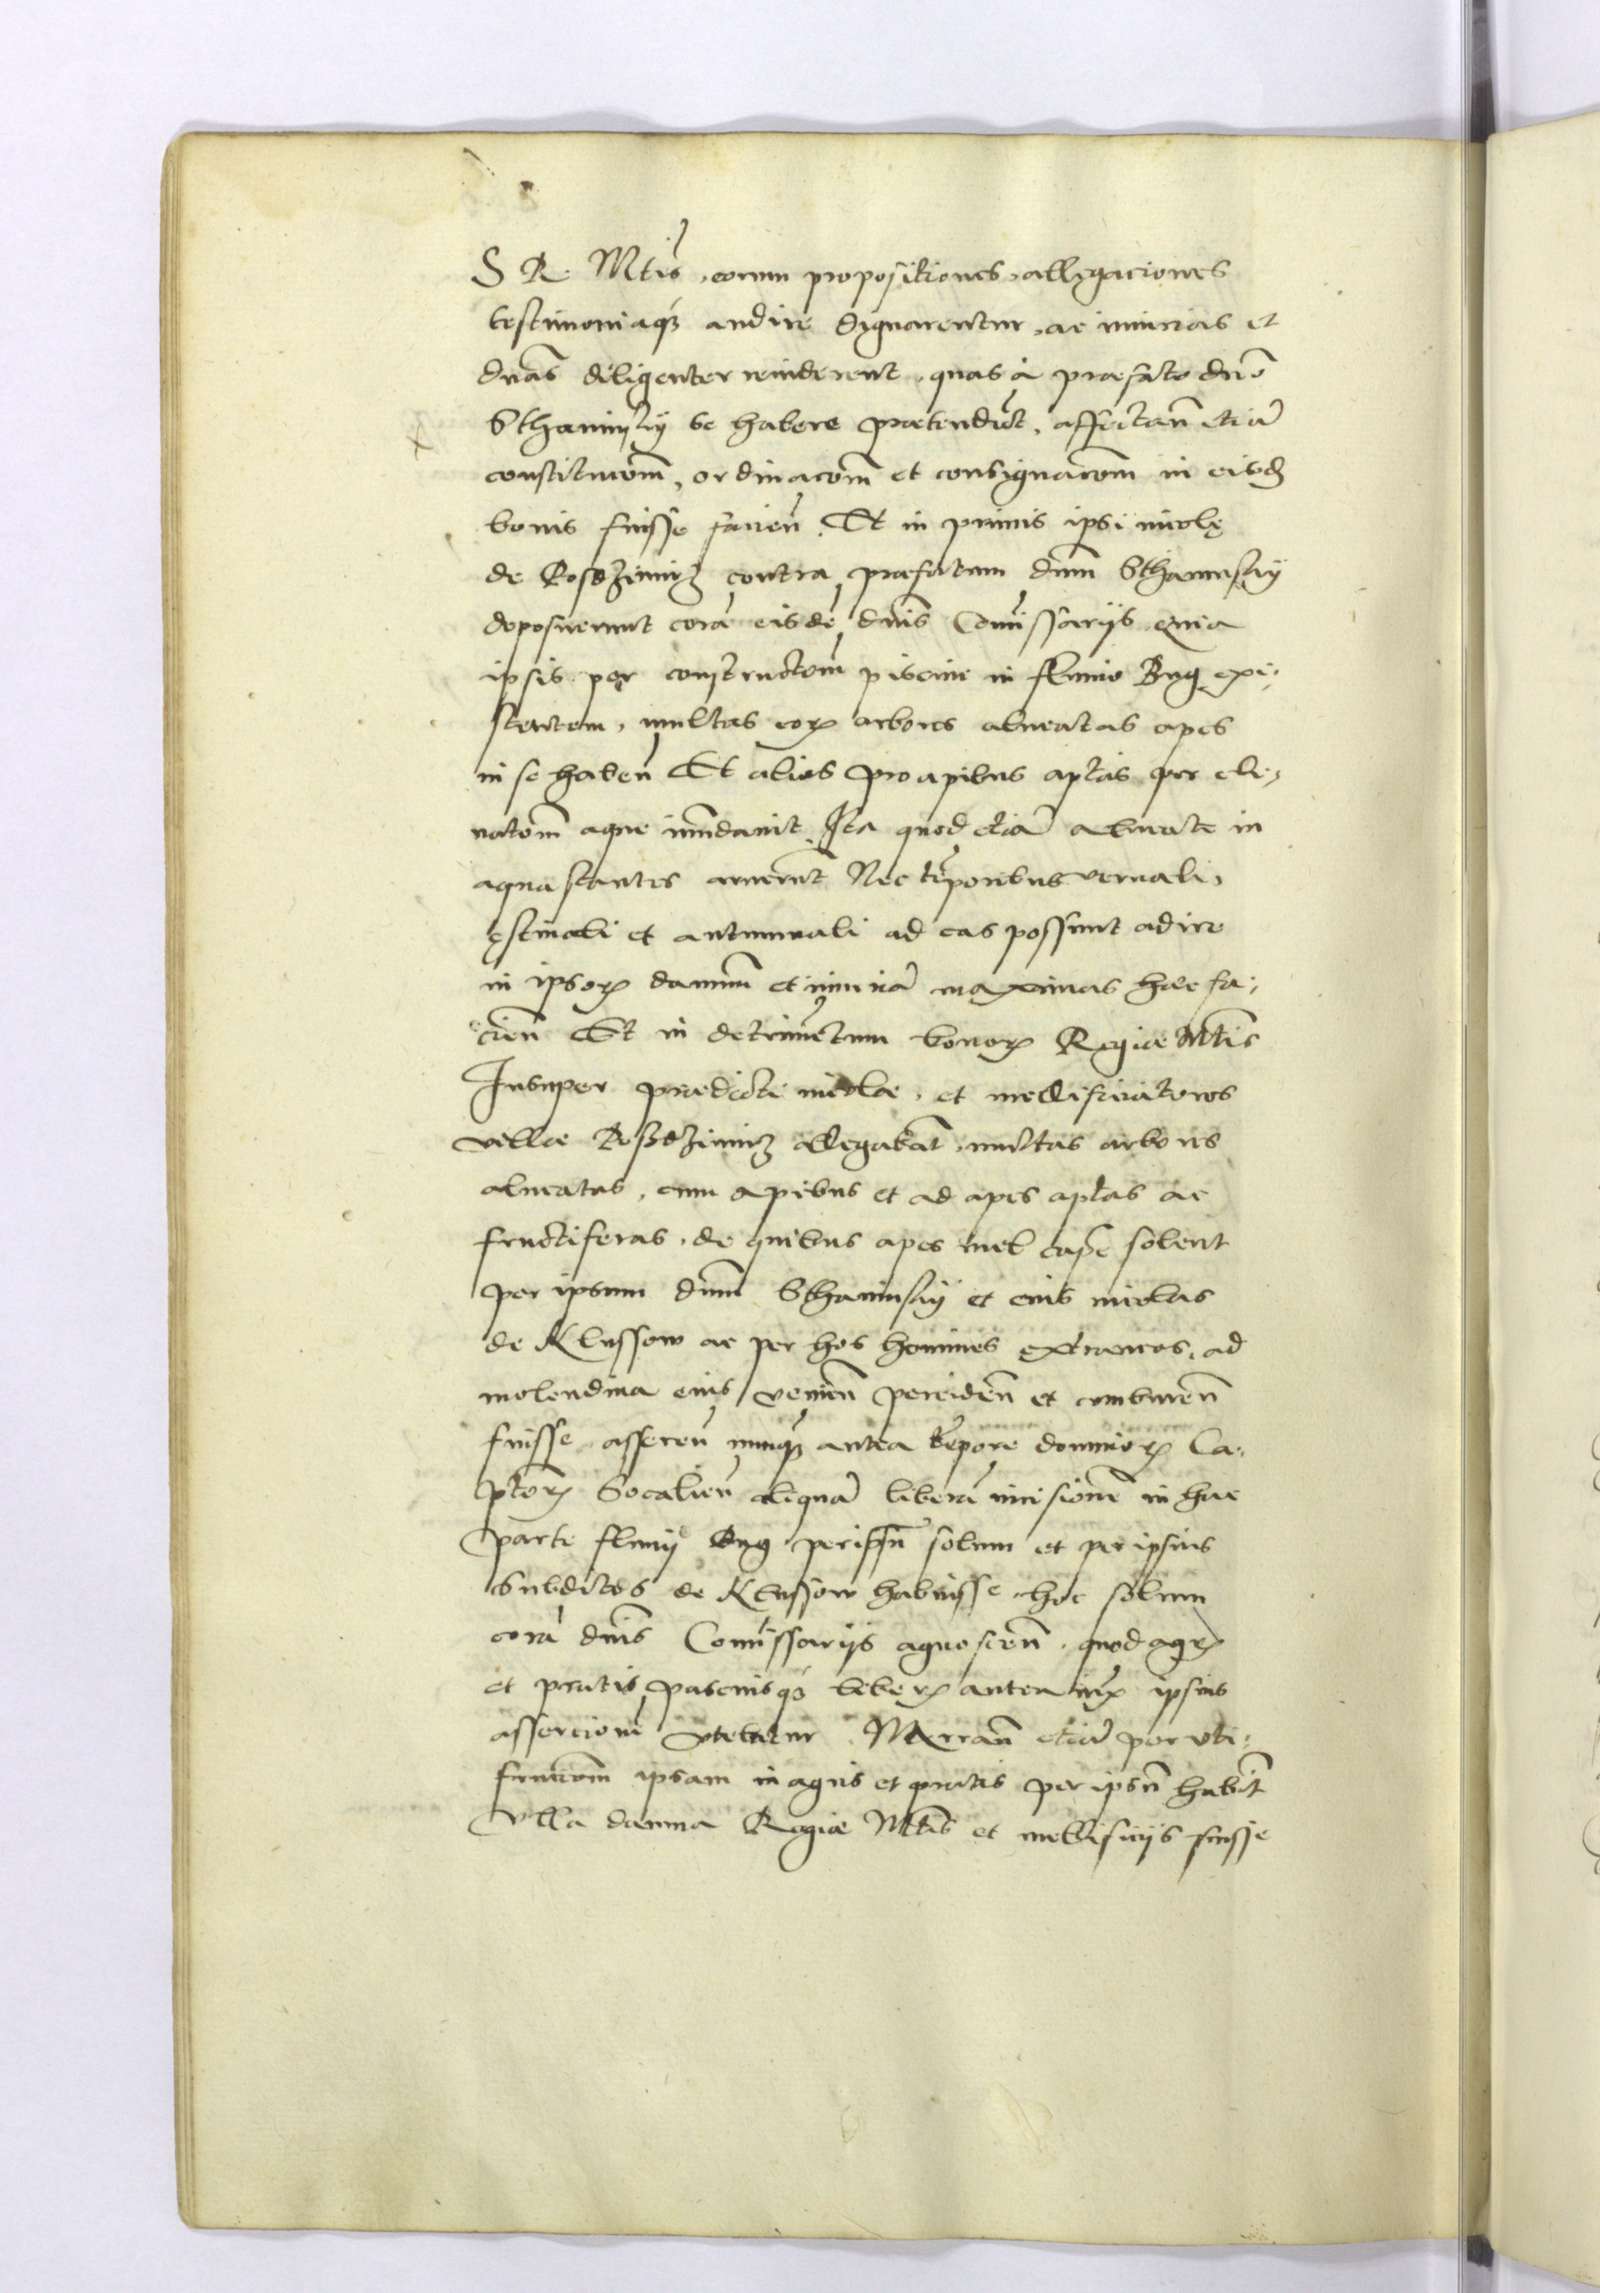 S R. Mtis, eorum propositiones, allegaciones
testimoniaq3 audire dignarentur, ac iniurias et
diligenter reviderent, quas a praefato dno
Sthaninsky se habere praetendūt, etiā
ordinacōm et consignacōm in
bonis fuisse Et in primis ipsi incolę
de contra praefatum dnm Sthaninsky
deposuerunt corā eisdē dnis Comissarijs quia
ipsis per constructōm piscine in fluvio Bug exi,
stentem, multas eorx arbores alveatas apes
in se haben̄ Et alias pro apibus aptas per ele,
vatōm aque inūndavit Ita quod etiā alveate in
aqua stantes aruerūt Nec tēporibus vernali,
ęstivali et autumnali ad eas possunt adire
in ipsorx damnum et iniuriā maximas hāc fa,
cien̄ Et in detrimētum bonorx Regiae Mtis
Insuper praedicte incolae, et mellificatores
villae allegabāt, multas arbores
alveatas, cum apibus et ad apes aptas ac
fructiferas, de quibus apes mel capē solent
per ipsum dnm Sthaninsky et eius incolas
de Klussow ac per hos homines extraneos, ad
molendina eius venien̄ percidēn et comburen̄
fuisse asseren̄ nunq3 antea tēpore dominorx Ca,
ptorx Socalien̄ aliquā liberā incisionē in hac
parte fluvij Bug per ipsū solum et per ipsius
subditos de Klussow habuisse, hoc solum
corā dnis Comissarijs agnoscen̄, quod agrx
et pratis pascuisq3 antea ipsius
assercioni utebatur etiā per
ipsam in agris et pratis per ipsū habit
ulla damna Regiae Mtis et mellificijs fuisse